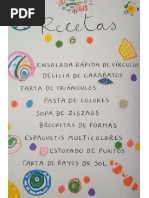 Recetas
ENSALADA RÁPIDA DE CÍRCULOS
DELICIA DE GARABATOS
TARTA DE TRIÁNGULOS
PASTA DE COLORES
SOPA DE ZIGZAGS
BROCHETAS DE FORMAS
ESPAGUETIS MULTICOLORES
ESTOFADO DE PUNTOS
TARTA DE RAYOS DE SOL